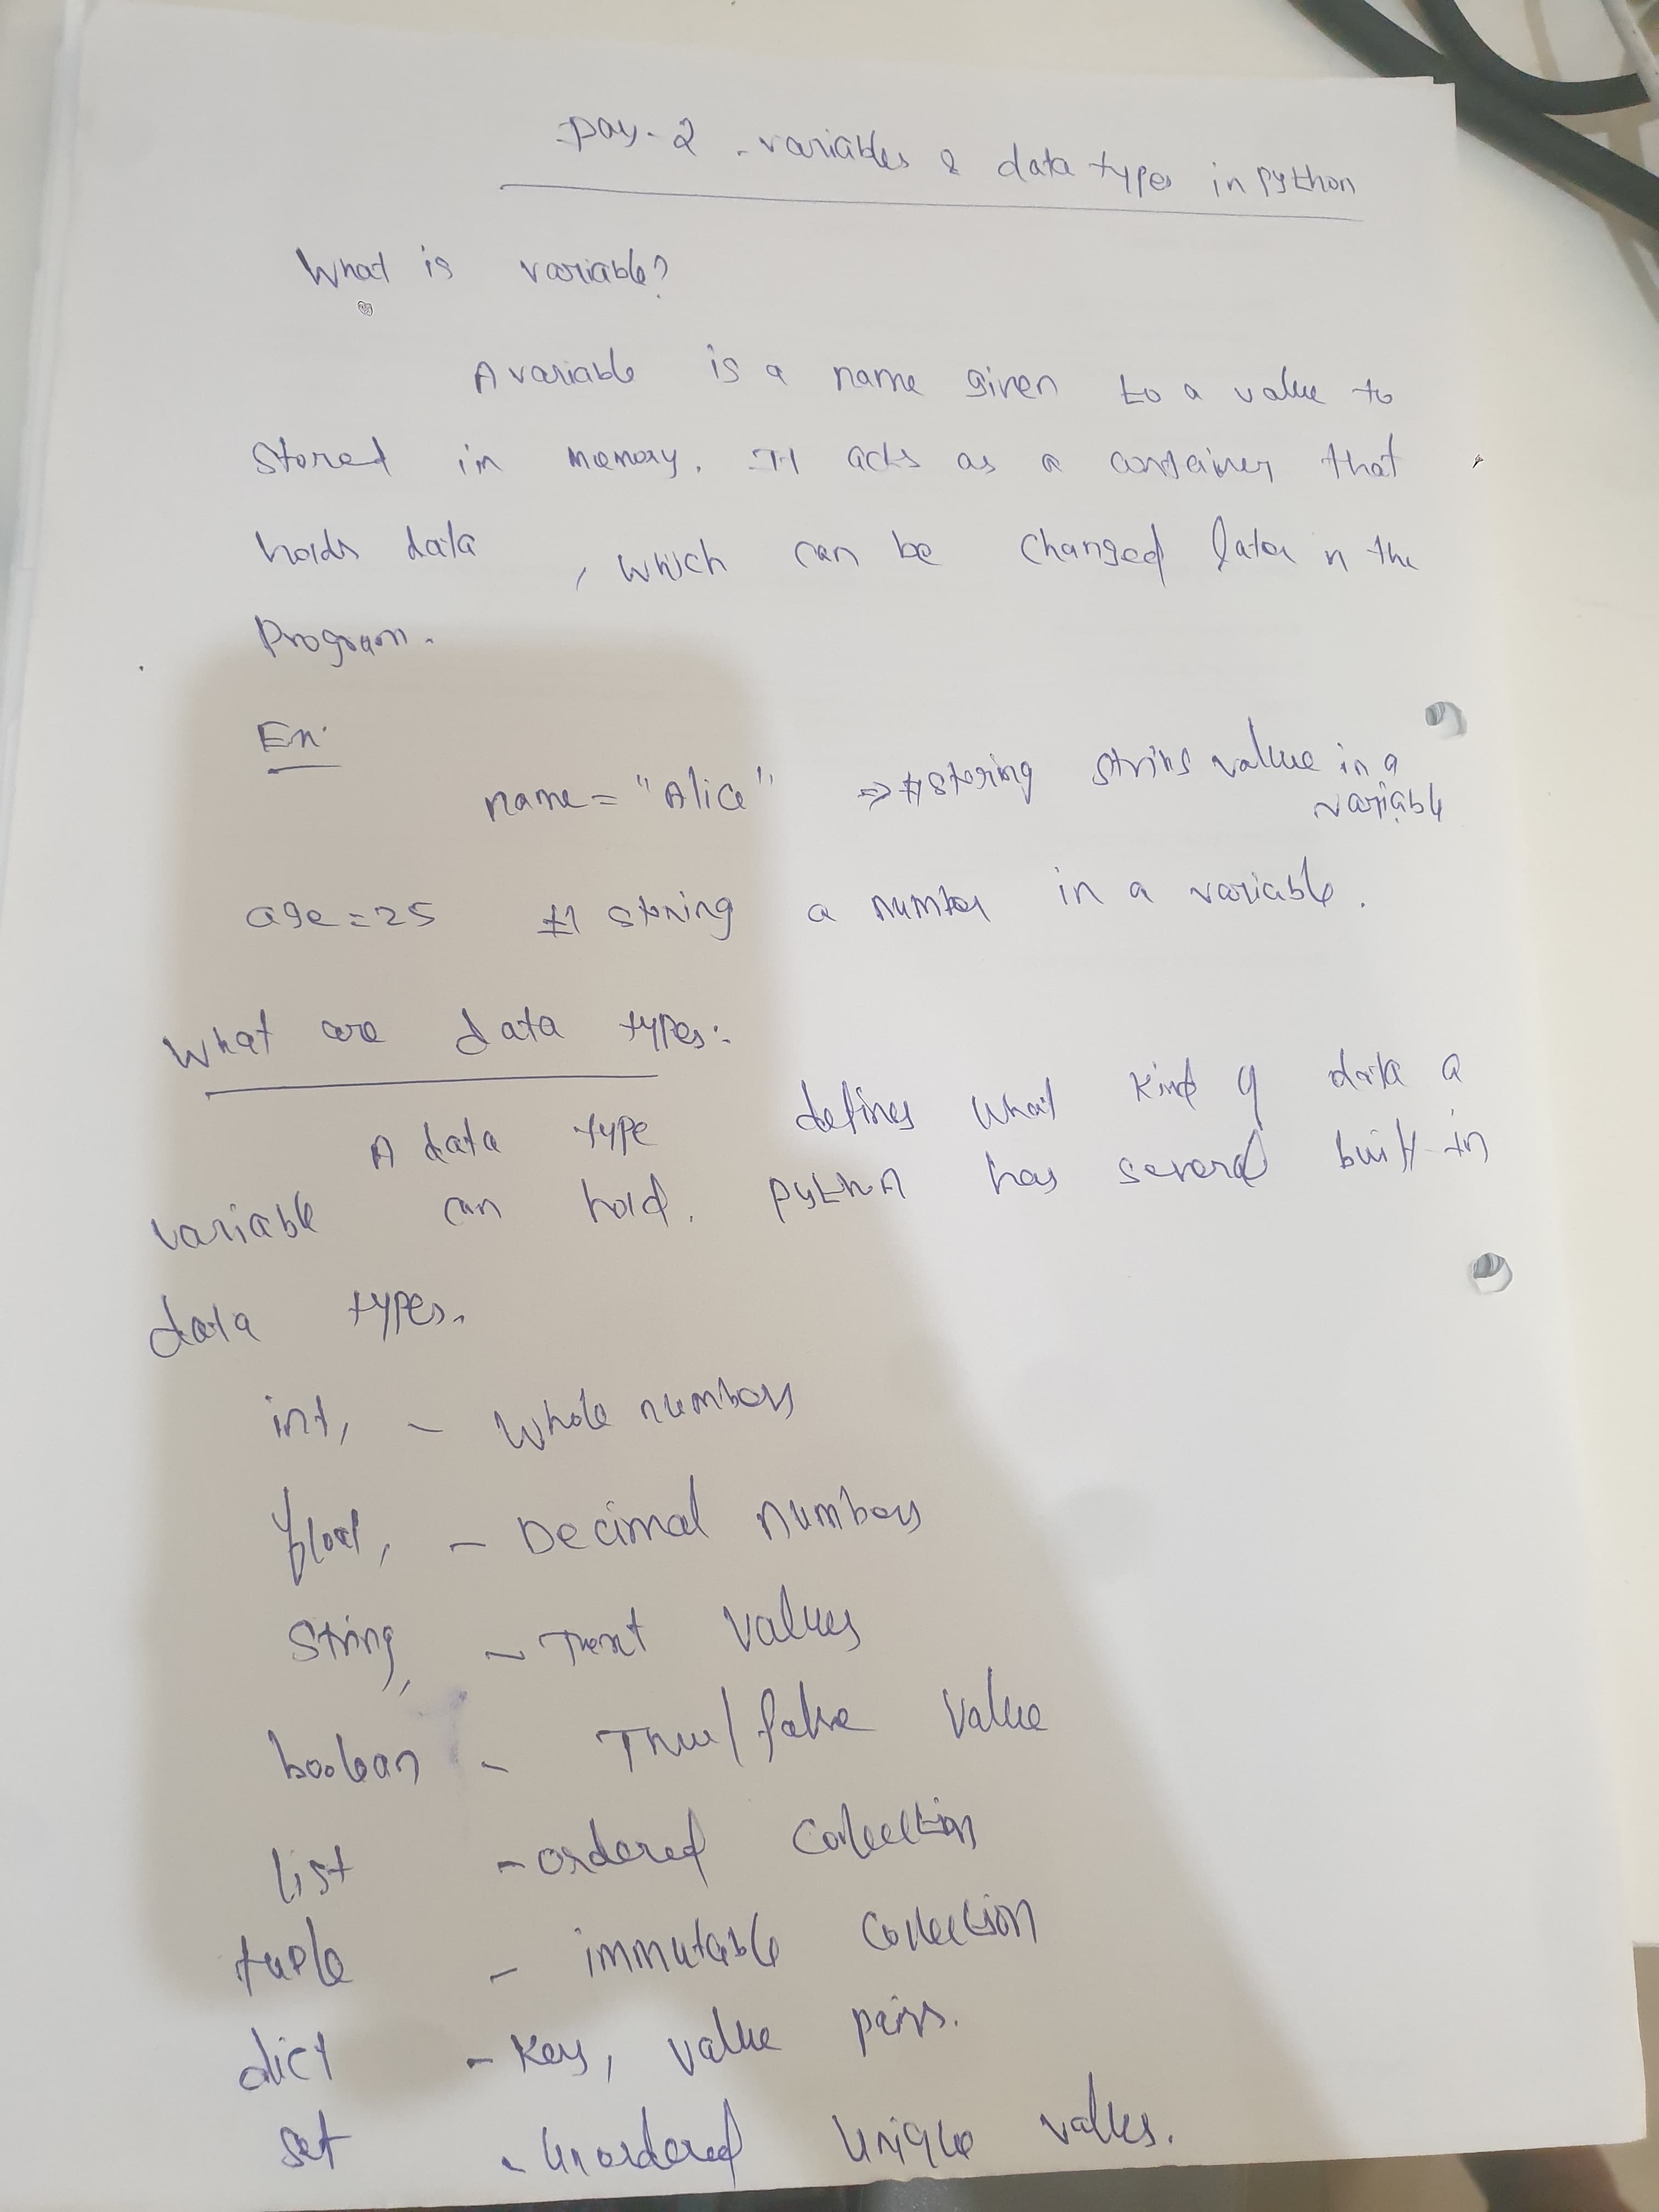 Day-2 - variables & data types in python
What is variable?
A variable is a name given to a value to
stored in memory. It acts as a container that
holds data , which can be changed later in the
Program.
Ex:
name = "Alice" => # storing string value in a
variable
age = 25 # storing a number in a variable.
What are data types:-
A data type defines what kind of data a
variable can hold. python has several built-in
data types.
int, - Whole numbers
float, - Decimal numbers
String, - Text values
boolean - True/false value
list - ordered collection
tuple - immutable collection
dict - Key, value pairs.
set - unordered unique values.